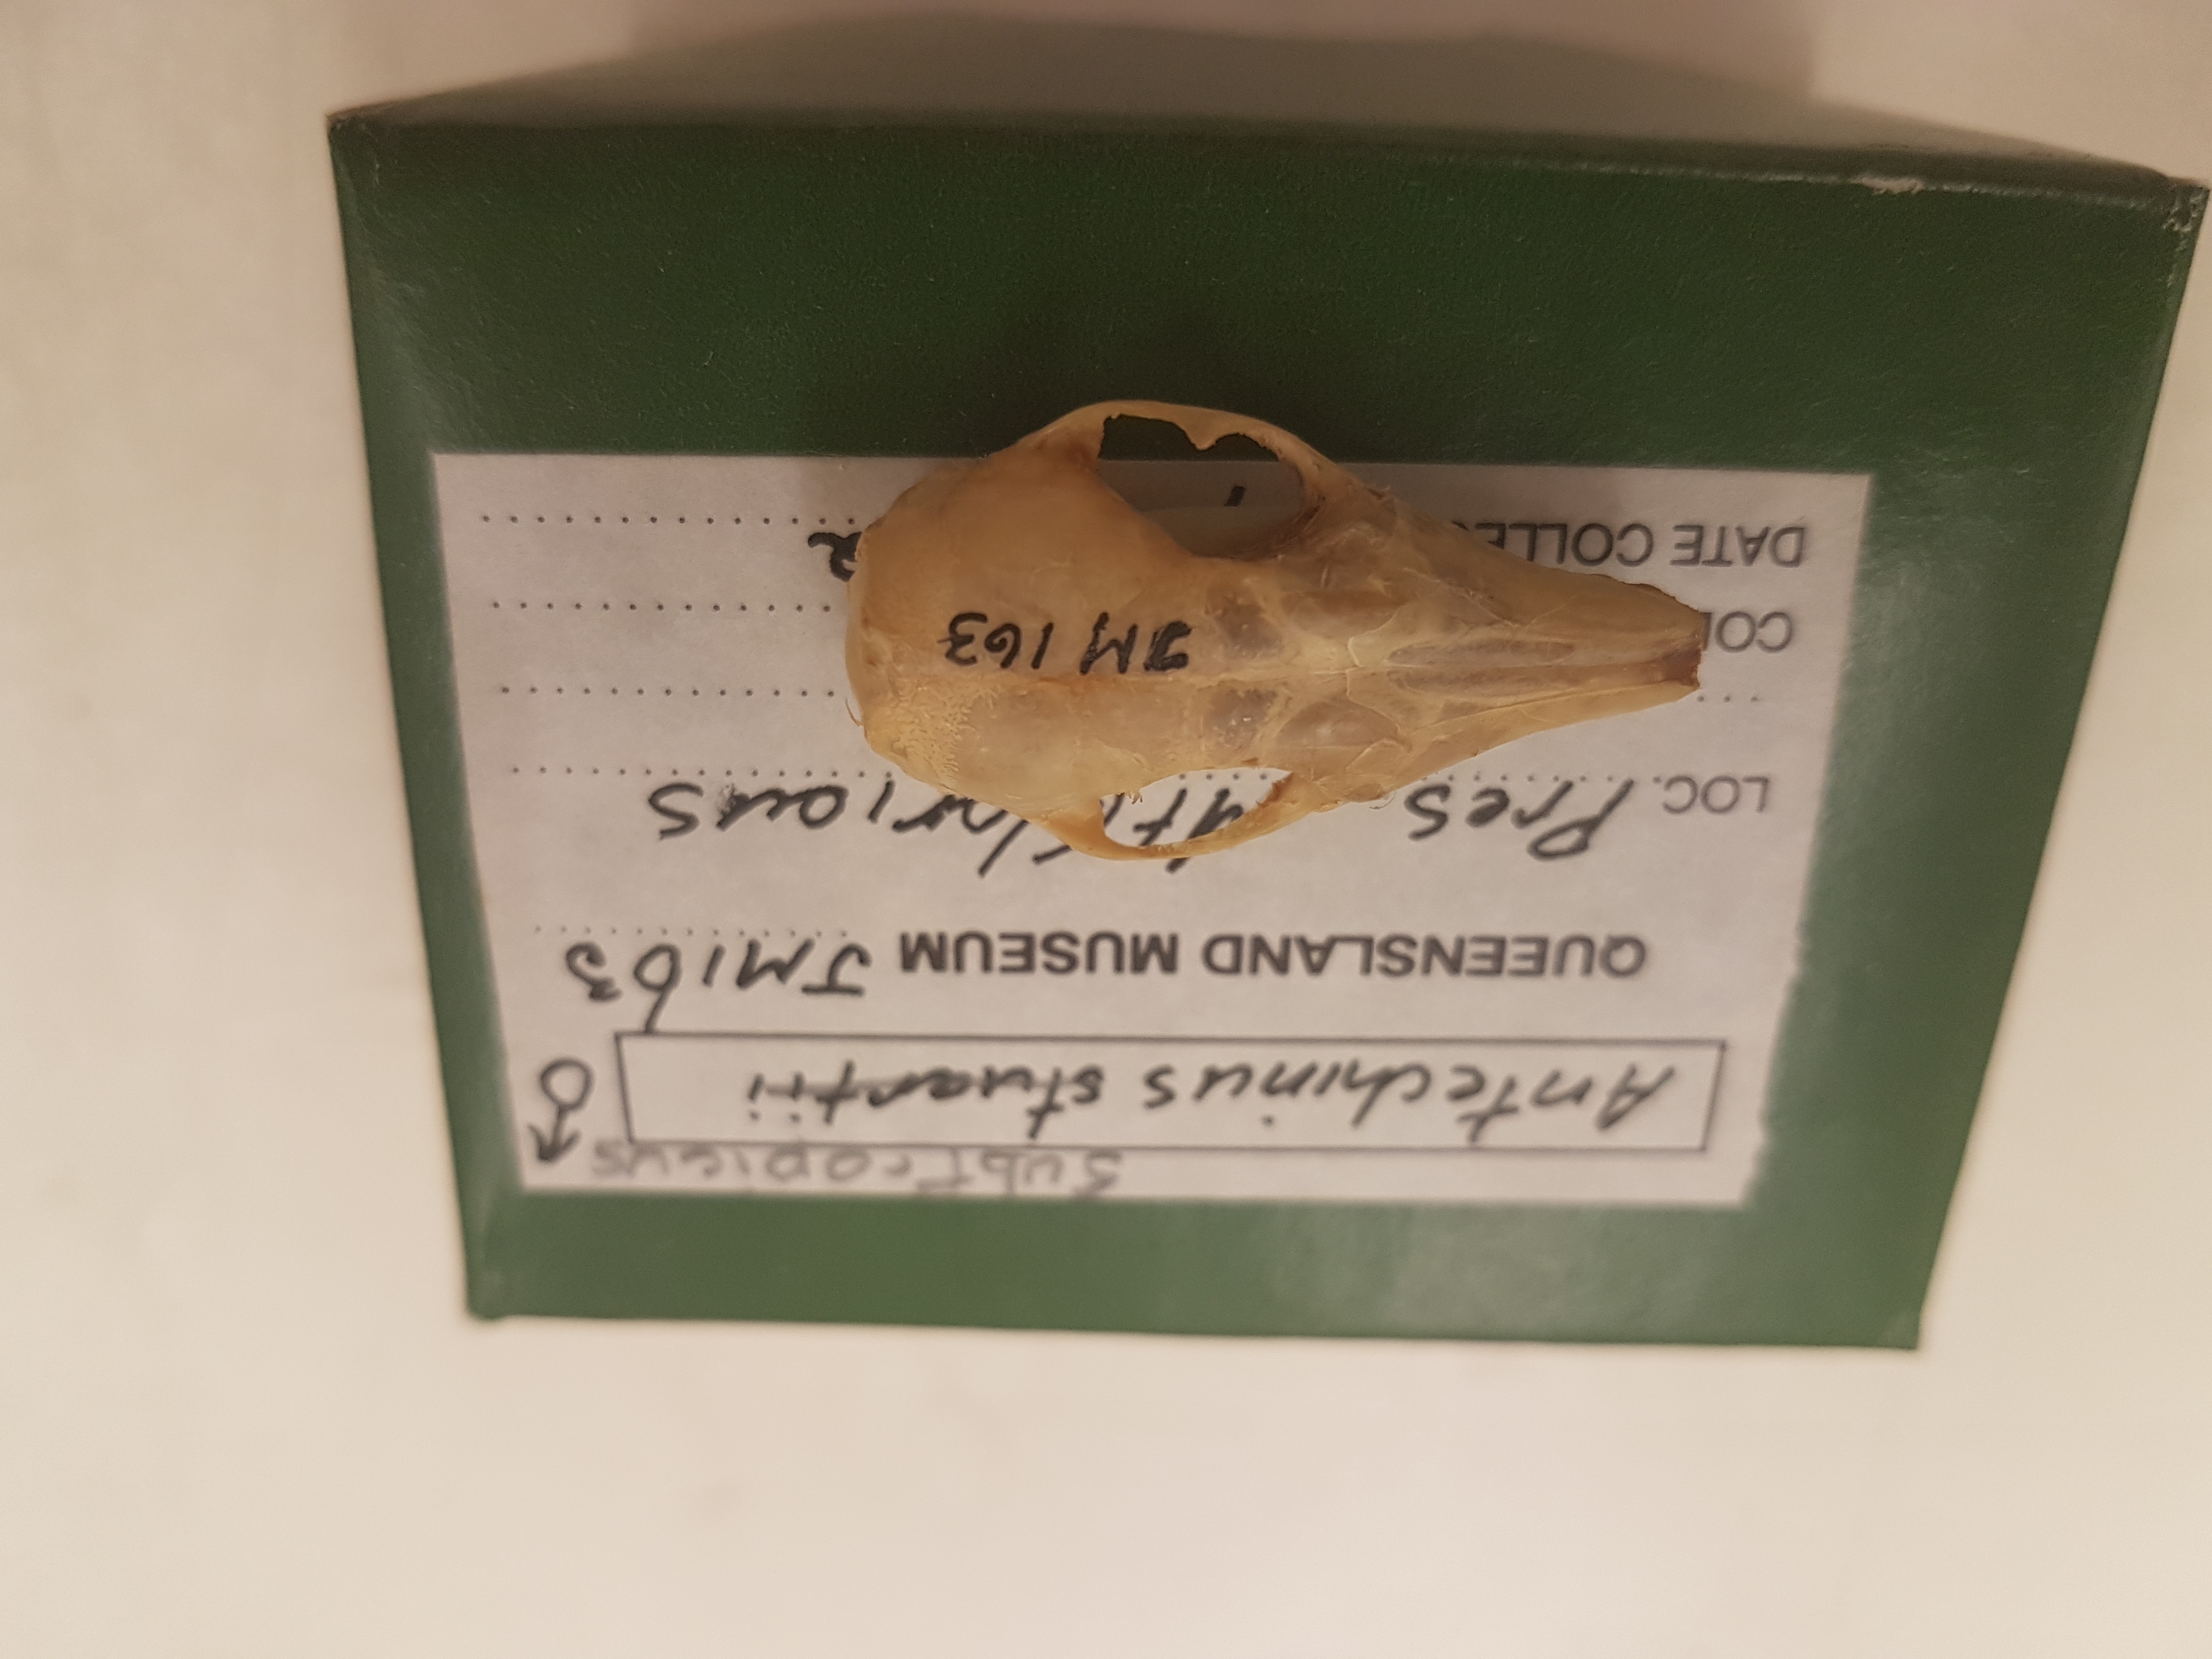 subtropicus
Antechinus stuartii ♂
QUEENSLAND MUSEUM JM163
LOC. Pres Mt Glorious
JM 163
DATE
2